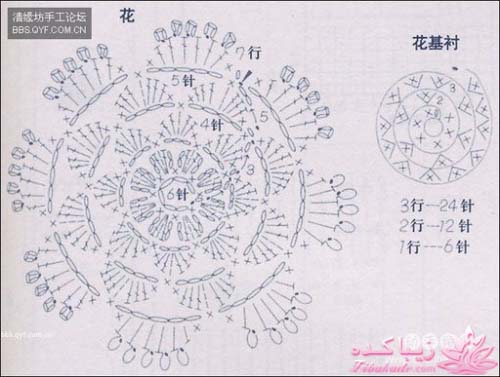 清缘坊手工论坛
BBS.QYF.COM.CN
花
7行
5针
4针
5
3
6针
花基衬
3
2
3行—24针
2行—12针
1行---6针
bbs.qyf.com.cn
زیبا کده
Zibakade.com